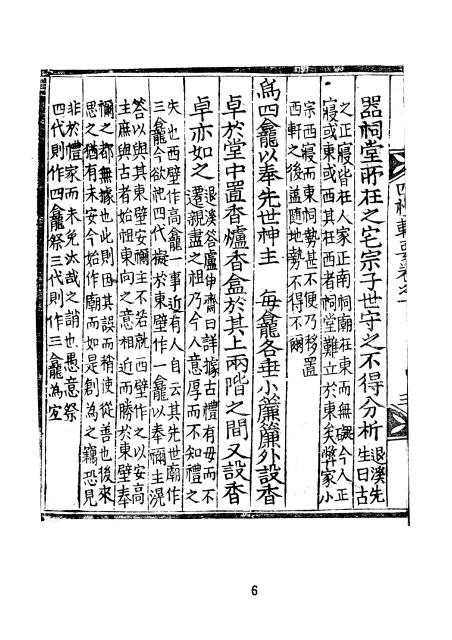 四禮輯要卷之一
三
器祠堂所在之宅宗子世守之不得分析
退溪先
生曰古
之正寢皆在人家正南祠廟在東而無礙今人正
寢或東或西其在西者祠堂難立於東矣弊家小
宗西寢而東祠勢甚不便乃移置
西軒之後蓋隨地勢不得不爾
爲四龕以奉先世神主 每龕各垂小簾簾外設香
卓於堂中置香爐香盒於其上兩階之間又設香
卓亦如之
退溪答盧伸齋曰詳據古禮有毋而不
遷親盡之祖乃今人意厚而不知禮之
失也西壁作高龕一事近有人自云其先世廟作
三龕今欲祀四代擬於東壁作一龕以奉禰主滉
答以與其東壁安禰主不若就西壁作之以安高
主庶與古者始祖東向之意相近而勝於東壁奉
禰之都無據也此則因其設而稍使從善也後來
思之猶有未安今始作廟而如是創爲之竊恐見
非於禮家而未免汰哉之誚也愚意祭
四代則作四龕祭三代則作三龕為宜
6